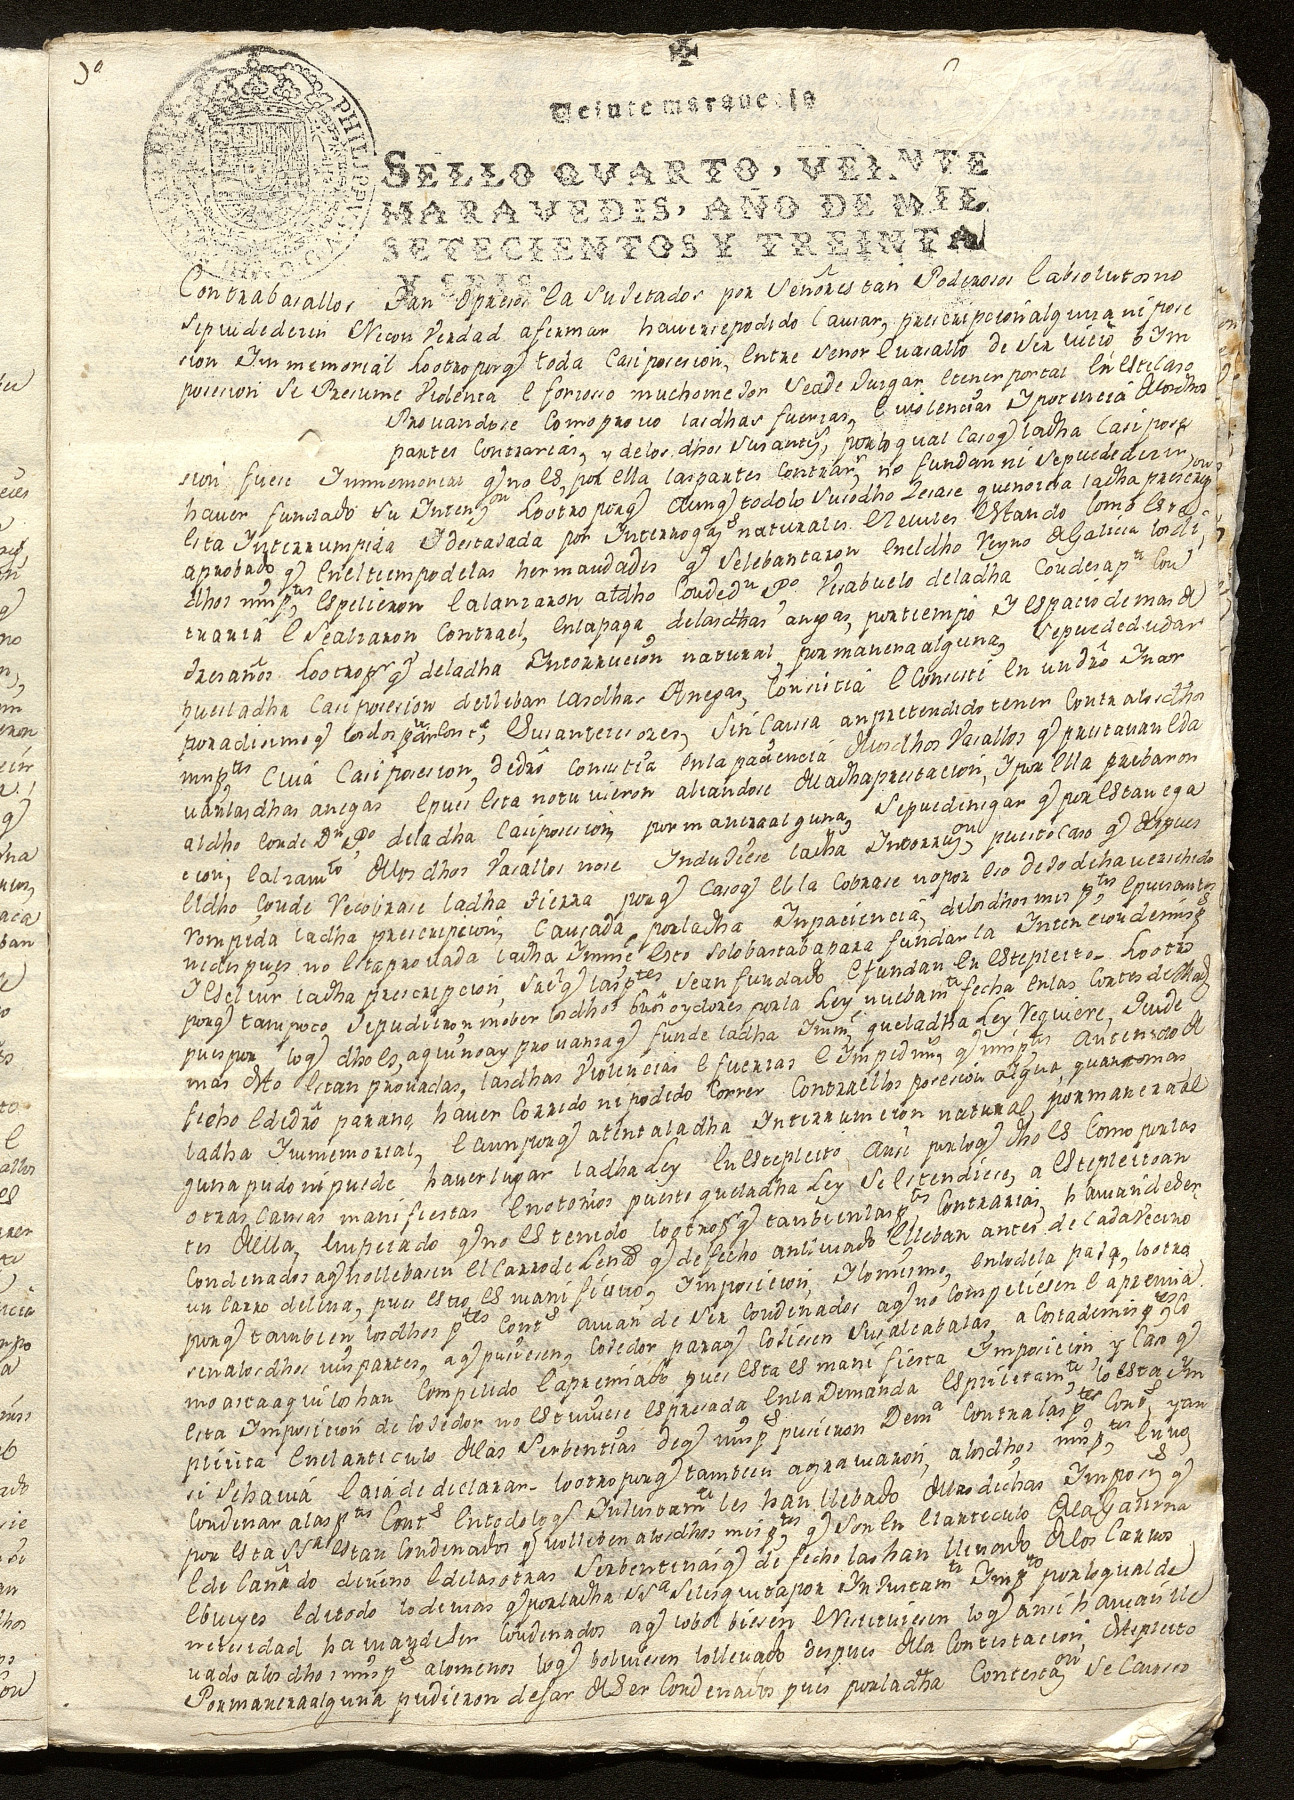 Veinte marauedis
SELLO QVARTO, VEINTE
MARAVEDIS, AÑO DE MIL
SETECIENTOS Y TREINTA
Y SEIS.
PHILIPPVS
Contrabasallos tan opresos e a sujetados por señores tan Poderosos e absolutos no
sepuidedecir Necon Verdad afirmar haverse podido Causar, prescrepcion alguna ni pose
sion Immemorial lo otro porq toda Casi posesion, Entre Señor e vasallo de Servicio o Im
posesion se Presume Violenta e forzoso mucho mejor sea de Juzgar e tener por tal En este caso
Provandose Como provo las dhas fuerzas, e violencias y potencia de los dhos
partes Contrarias, y de los dhos sus antes, por lo qual Caso q la dha Casi pose
sion fuese Immemorial q no es, por ella las partes Contrars, no fundan ni se puede decir
haver fundado su Intenon lo otro porq aunq todo lo susodho Zesase que no zesa la dha prescrepon
esta Interrumpida y destajada por Interrogas naturales e Zeviles estando Como esta
aprobado q en el tiempo de las hermandades q se lebantaron en el dho Reyno de Galicia los di
dhos mis ptes espelieron e alanzaron al dho Conde dn Po Visabuelo de la dha Condesa pte Con
traria e se alzaron Contra el, en la paga de las dhas anegas, por tiempo y espacio de mas de
tres años lo otro pr q de la dha Interrucion natural por manera alguna, se puede dudar
pues la dha Casi posesion de llebar las dhas Anegas, Consistia e Consisti en un drô Incor
poradisimo q los dos par Cont, e sus antecesores, sin Causa an pretendido tener Contra los dhos
mis ptes Cuia Casi posesion, de drô Consistia en la paciencia de los dhos Vasallos q prestavan e da
van las dhas anegas e pues esta no tuvieron alzandose de la dha prestacion, y por ella pribaron
al dho Conde Dn Po de la dha Casi posesion por manera alguna, se puede negar q por esta nega
cion, e alzamto de los dhos Vasallos no se Indujese la dha Interrupon, puesto Caso q despues
el dho Conde Recobrase la dha tierra porq Caso q el la Cobrase no por eso dejo de haver sido
rompida la dha prescripcion, Causada por la dha Inpaciencia de los dhos mis ptes e pues antes
ni despues no esta provada la dha Imme, esto solo bastaba para fundar la Intencion de mis pes
y escluir la dha prescripcion, sobre q las ptes se an fundado e fundan en este pleito. Lo otro
porq tampoco se pudieron mober los dhos buros oydores por la Ley nuebamte fecha en las Cortes de Mad
pues por lo q dho es, aqui no ay provanza q funde la dha Imme, que la dha Ley Requiere, donde
mas desto estan provadas, las dhas Violencias e fuerzas e Impedimos q mis ptes an tenido de
fecho e de drô para no haver Corrido ni podido Correr Contra ellos posesion alguna, quanto mas
la dha Immemorial, e aun porq atenta la dha Interrumcion natural, por manera al
guna pudo ni puede haver lugar la dha Ley en este pleito ansi por lo q dho es Como por las
otras Causas manifiestas e notorios puesto que la dha Ley se estendiese, a este pleito an
tes della, Empezado q no es tenido lo otro pr q tambien las ptes Contrarias, havian de ser
Condenados a q no llebasen el Carro de Leña q de fecho an llevado e lleban antes de Cada Vecino
un Carro de lena, pues esto es manifiesto, Imposicion, y lo mismo, en lo de la paja, lo otro
porq tambien los dhos ptes Conts avian de ser Condenados a q no Compeliesen e apremia
sen a los dhos mis partes, a q pusiesen, Cojedor para q Cojiesen sus alcabalas, a Costa de mis ptes Co
mo asta aqui los han Compelido e apremiado pues esta es manifiesta Imposicion, y Caso q
esta Imposicion de Cojedor no estuviese espresada en la Demanda espresitamte lo esta Im
plicita en el articulo de las serbentias de q mis ps pusieron Dema Contra las ptes Conts y an
si se havia e avia de declarar. lo otro porq tambien agraviaron, a los dhos mis ptes en no
Condenar a las ptes Conts en todo lo q Injustamte les han llebado de las dichas Imposes q
por esta Sa estan Condenados q no lleben a los dhos mis ptes q son en el articulo de la Gallina
e de Cañado de vino e de las otras serbentias q de fecho las han llevado de los Carros
e bueyes e de todo lo demas q por la dha Sa se les quita por Injustamte Impto por lo qual de
necesidad havian de ser Condenados a q lo bolbiesen e Restituiesen lo q ansi havian lle
vado a los dhos mis ps alomenos lo q bolviesen lo llevado despues de la Contestacion del pleito
Por manera alguna pudieron dejar de ser Condenados pues por la dha Contestaon se Causo